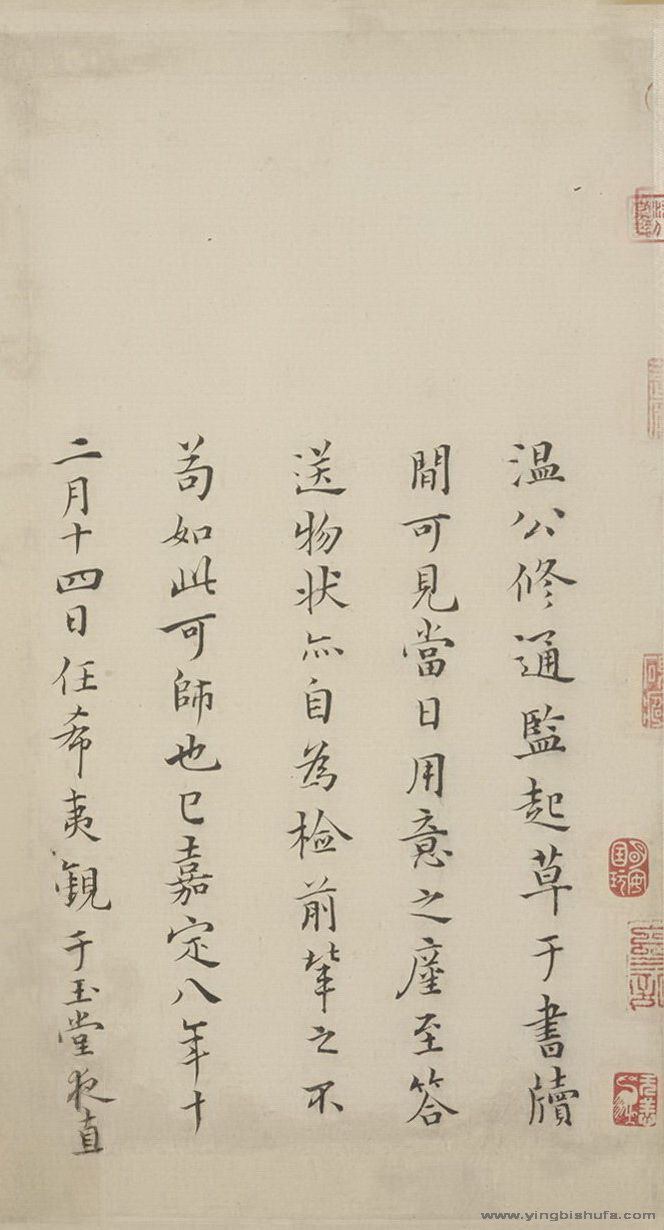 温公修通監起草于書牘
間可見當日用意之廑至答
送物状亦自為檢前輩之不
苟如此可師也已嘉定八年十
二月十四日任希夷觀于玉堂夜直
www.yingbishufa.com